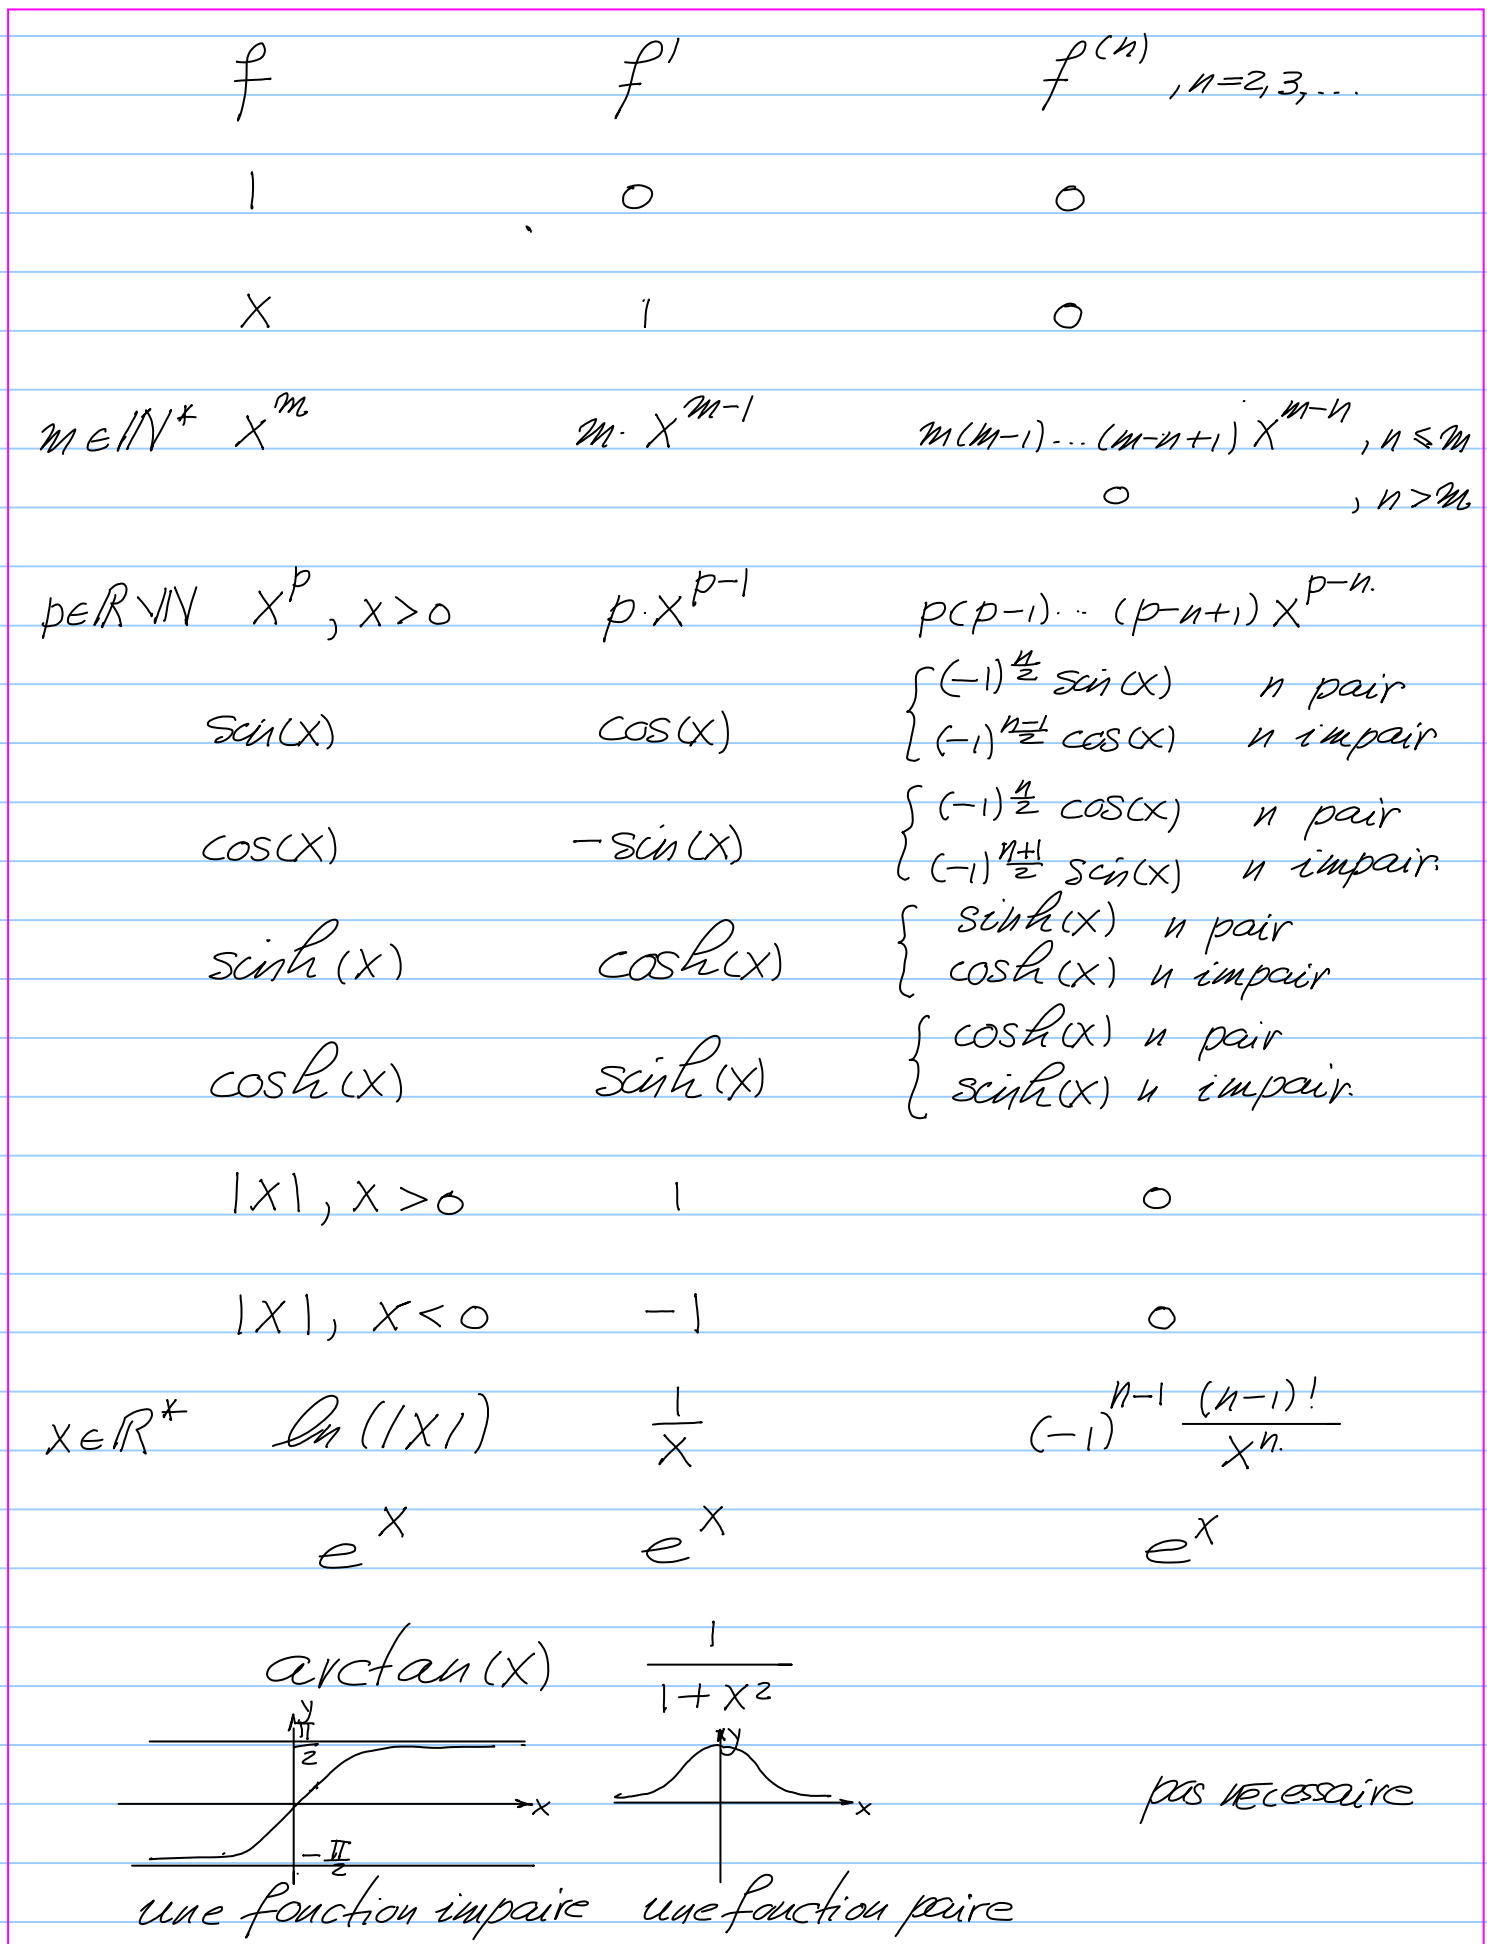 f f' f^(n) , n=2,3,...
1 0 0
x 1 0
m∈ℕ* x^m m·x^(m-1) m(m-1)...(m-n+1) x^(m-n) , n≤m
0 , n>m
p∈ℝ\ℕ x^p , x>0 p·x^(p-1) p(p-1)...(p-n+1) x^(p-n)
sin(x) cos(x) { (-1)^(n/2) sin(x) n pair
(-1)^((n-1)/2) cos(x) n impair
cos(x) -sin(x) { (-1)^(n/2) cos(x) n pair
(-1)^((n+1)/2) sin(x) n impair.
sinh(x) cosh(x) { sinh(x) n pair
cosh(x) n impair
cosh(x) sinh(x) { cosh(x) n pair
sinh(x) n impair.
|x|, x>0 1 0
|x|, x<0 -1 0
x∈ℝ* ln(|x|) 1/x (-1)^(n-1) (n-1)!/x^n
e^x e^x e^x
arctan(x) 1/(1+x²)
y π/2 y
x x pas necessaire
-π/2
une fonction impaire une fonction paire